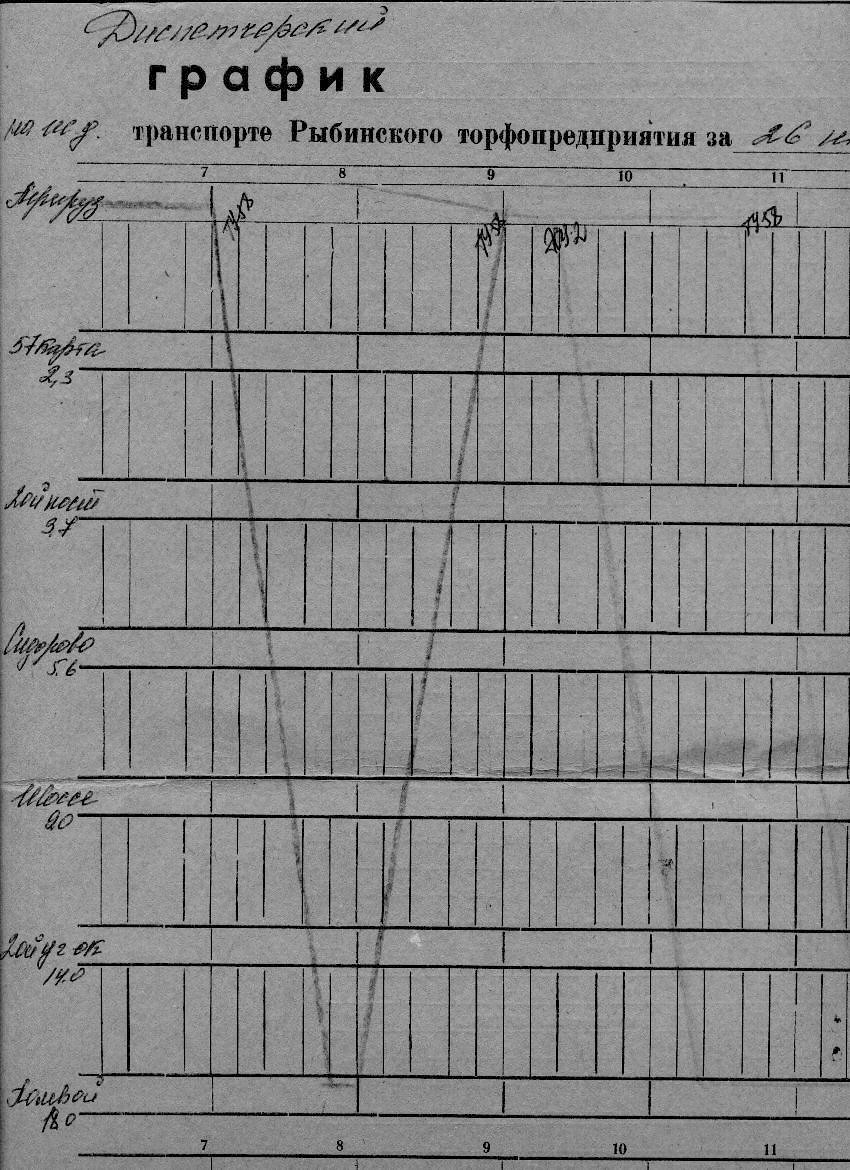 Диспетчерский
график
на ж.д. транспорте Рыбинского торфопредприятия за 26
7 8 9 10 11
Перегруз
ТУ58 ТУ58 ТУ2 ТУ58
57 карта
2,3
2ой мост
3.7
Сидорово
5.6
Шоссе
9.0
2ой уг ок
14.0
Полевой
18.0
7 8 9 10 11